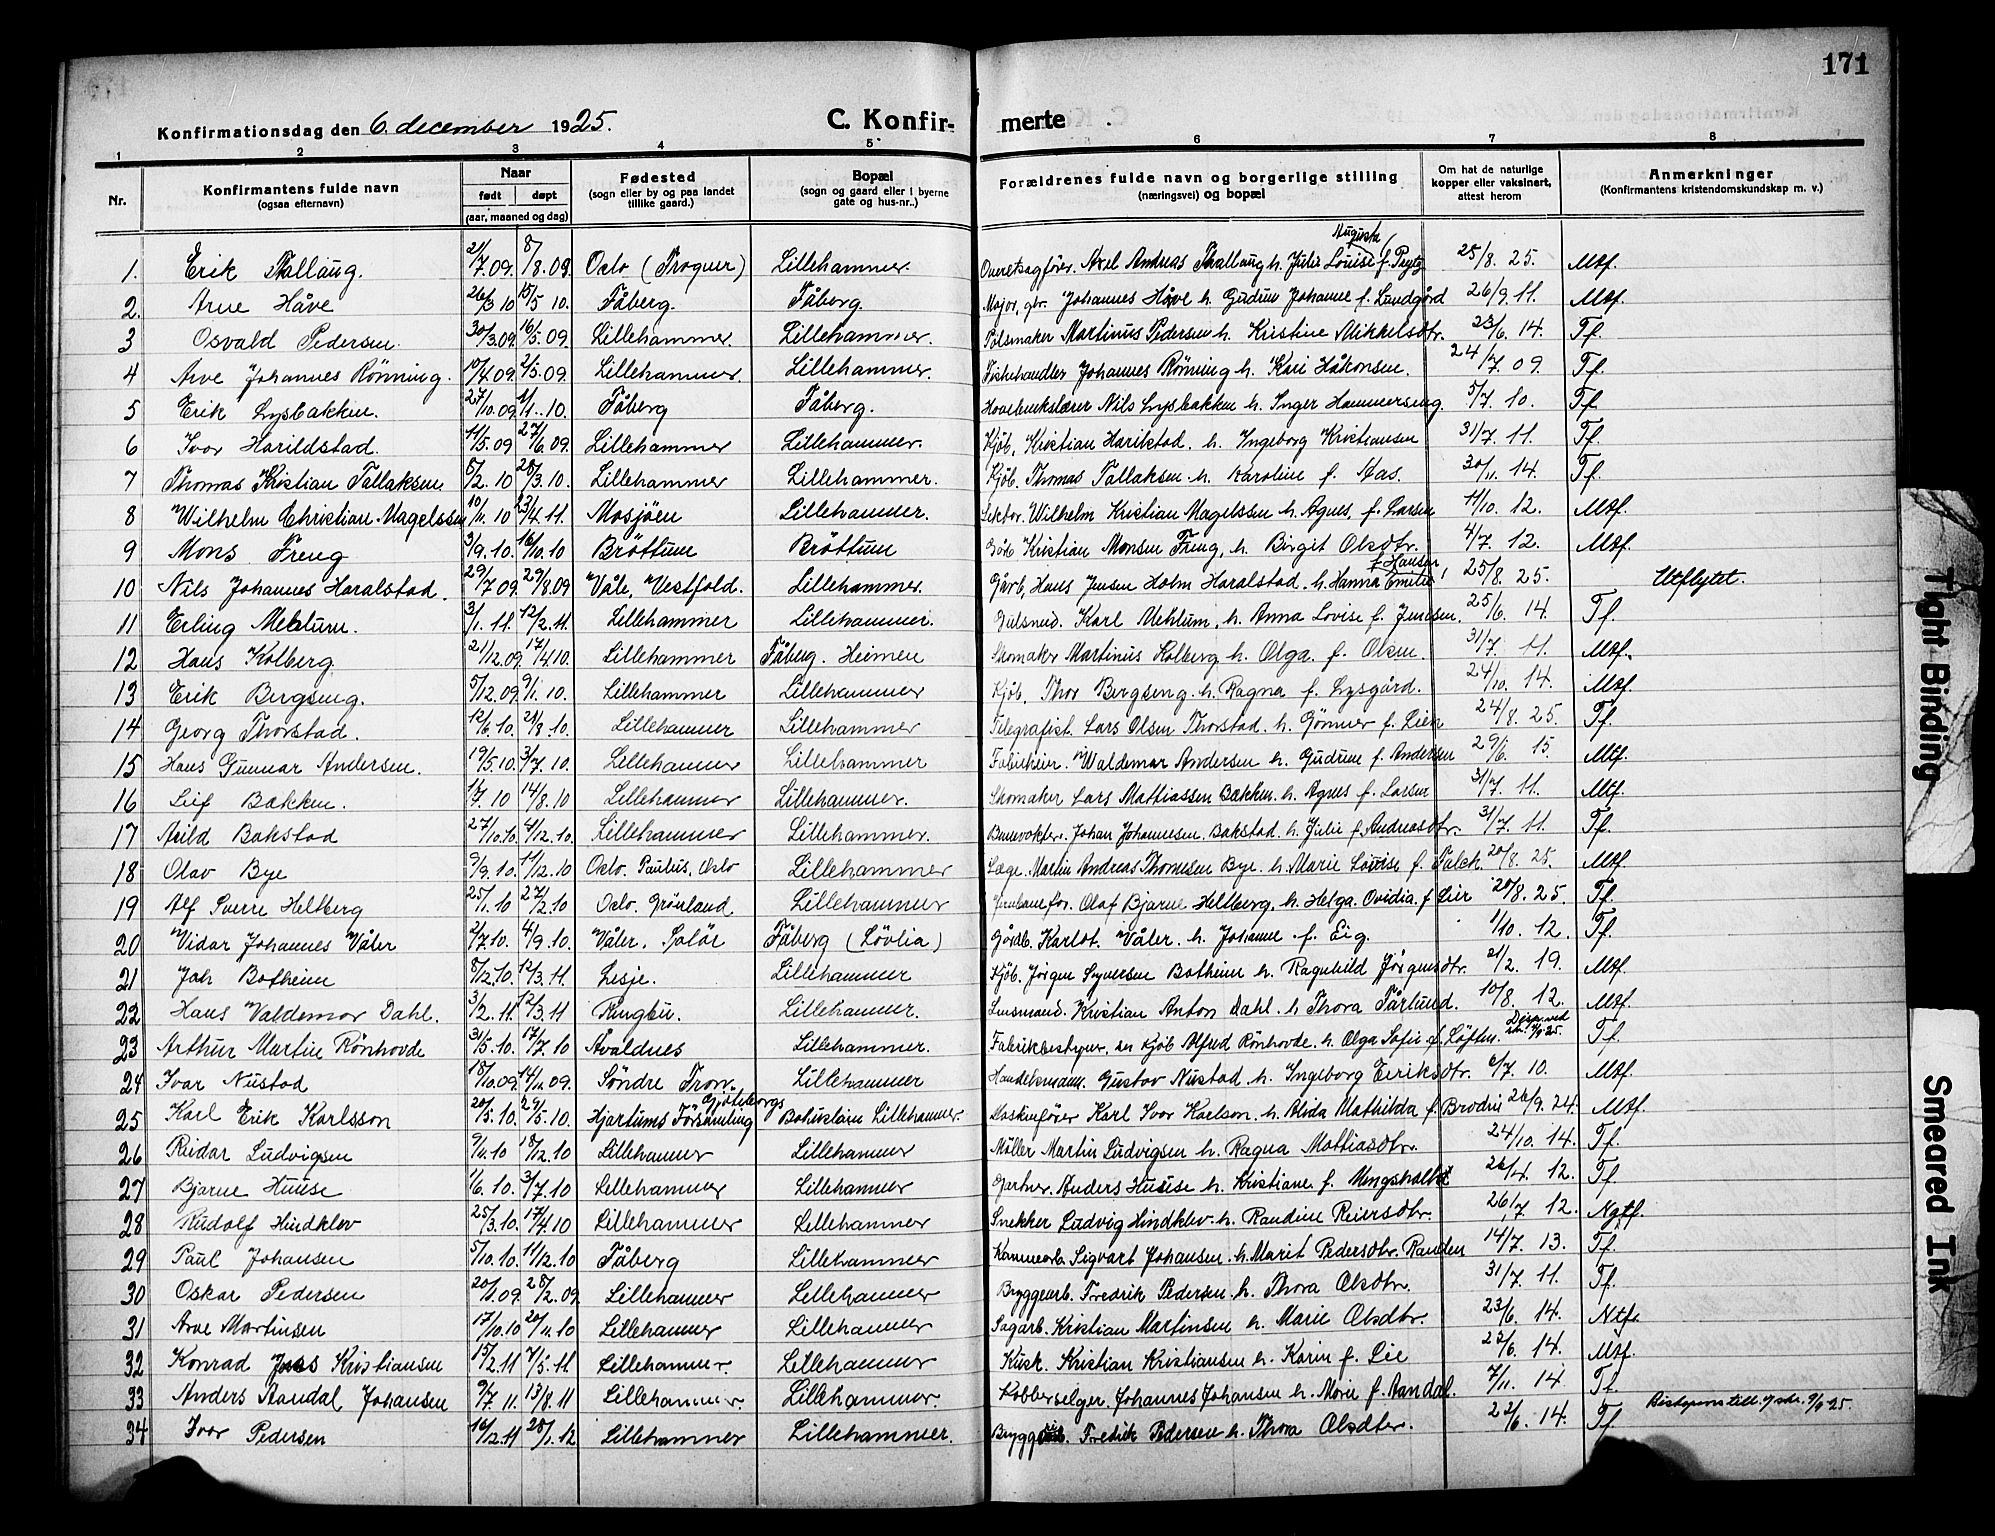 171
Konfirmationsdag den 6. december 1925. C. Konfir- merte
1 2 3 4 5 6 7 8
Nr. Konfirmantens fulde navn (ogsaa efternavn) Naar født døpt (aar, maaned og dag) Fødested (sogn eller by og paa landet tillike gaard.) Bopæl (sogn og gaard eller i byerne gate og hus-nr..) Forældrenes fulde navn og borgerlige stilling (næringsvei) og bopæl Om hat de naturlige kopper eller vaksinert, attest herom Anmerkninger (Konfirmantens kristendomskundskap m. v.)
Augusta
1. Erik Thallaug. 21/7.09. 8/8.09. Oslo (Frogner) Lillehammer. Axel Andreas Thallaug h. Julie Louise f. Prytz 25/8. 25. Mtf.
2. Arne Håve 26/3 10 15/5 10. Fåberg. Fåberg. Major, gbr. Johannes Håve h. Gudrun Johanne f. Lundgård 26/9. 11. Mtf.
3 Osvald Pedersen. 30/3.09. 16/5.09. Lillehammer. Lillehammer. Pølsmaker Martinus Pedersen h. Kristine Mikkelsdtr. 23/6. 14. Tf.
4 Arve Johannes Rönning. 2/5.09. Lillehammer. Lillehammer. Fiskehandler Johannes Rönning h. Kari Håkonsen. 24/7. 09. Tf.
5 Erik Lysbakken. 27/10.09. 1/1. 10. Fåberg Fåberg. Nils Lysbakken h. Inger Hammerseng. 5/7. 10. Tf.
6 Ivar Harildstad. 11/5.09 27/6.09. Lillehammer Lillehammer. Kjöb. Kristian Harildstad. h. Ingeborg Kristiansen 31/7. 11. Tf.
7 Thomas Kristian Tallaksen 5/2. 10 28/3. 10. Lillehammer Lillehammer. Kjöb. Thomas Tallaksen h. Karoline f. Aas. 30/11. 14. Tf.
8 Wilhelm Christian Magelssen 10/11. 10 23/4. 11. Mosjöen Lillehammer. Lektor. Wilhelm Kristian Magelssen h. Agnes, f. Larsen 11/10. 12. Mtf.
9 Mons Freng 3/9. 10. 16/10. 10 Bröttum Bröttum Kristian Monsen Freng, h. Birgit Olsdtr. 4/7. 12. Mtf.
f. Hansen
10 Nils Johannes Haralstad. 29/7 09. 29/8.09 Våle, Vestfold. Lillehammer. Gårb. Hans Jensen Holm Haralstad. h. Hanna Emilie 25/8. 25. Utflytet.
11 Erling Mehlum. 3/1. 11. 12/2. 11. Lillehammer Lillehammer. Gulsmed. Karl Mehlum, h. Anna Lovise f. Jensen. 25/6 14. Tf.
12 Hans Kolberg. 21/12.09. 17/4 10. Lillehammer Fåberg. Heimen Skomaker Martinus Kolberg h. Olga f. Olsen. 31/7. 11. Mtf.
13 Erik Bergseng. 5/12.09. 9/1. 10. Lillehammer Lillehammer Kjöb. Thor Bergseng. h. Ragna f. Lysgård. 24/10. 14. Mtf.
14 Georg Thorstad. 12/6. 10. 21/8. 10 Lillehammer Lillehammer Telegrafist. Lars Olsen Thorstad. h. Gönner f. Lien 24/8. 25. Tf.
15 Hans Gunnar Andersen. 19/5. 10. 3/7. 10. Lillehammer Lillehammer Waldemar Andersen h. Gudrun f. Andersen 29/6. 15. Mtf.
16 Leif Bakken. 1/7. 10 14/8. 10 Lillehammer Lillehammer. Skomaker Lars Mathiassen Bakken. h. Agnes f. Larsen 31/7. 11. Mtf.
17 Arild Bakstad 27/10.10. 4/12. 10. Lillehammer Lillehammer. Banevokter. Johan Johannesen Bakstad. h. Julie f. Andreasdtr. 31/7. 11. Tf.
18 Olav Bye 9/9. 10. 11/12. 10 Oslo. Paulus, Oslo Lillehammer Læge. Martin Andreas Thomesen Bye. h. Marie Louise f. Falch 20/8. 25. Mtf.
19 Alf Sverre Heltberg 25/11. 10 27/2. 10 Oslo. Grönland Lillehammer Olaf Bjarne Heltberg. h. Helga Ovidia f. Lier 20/8. 25. Tf.
20 Vidar Johannes Våler 2/7. 10. 4/9. 10. Våler. Solör Fåberg (Lövlia) Gårdb. Karlot. Våler. h. Johanne f. Eig. 1/10. 12. Tf.
21 Jah Botheim 8/12. 10. 12/3. 11. Lesje. Lillehammer Kjöb. Jörgen Syversen Botheim h. Ragnhild Jörgensdtr. 21/2. 19. Mtf.
22 Hans Valdemar Dahl. 3/2. 11. 12/3. 11 Ringbu. Lillehammer. Lensmand. Kristian Anton Dahl. h Thora Fårlund. 10/8. 12. Mtf.
Disp. ved
23 Arthur Martin Rönhovde 31/5. 10. 17/7. 10 Avaldnes Lillehammer. Fabrikbestyrer, Kjöb Alfred Rönhovde. h. Olga Sofie f. Löften. Tf.
24 Ivar Nustad 18/10.09. 14/11. 09. Söndre Fron. Lillehammer Handelsmann. Gustav Nustad h. Ingeborg Eiriksdtr. 6/7. 10. Mtf.
Gjöteborgs
25 Karl Erik Karlsson 20/5. 10. 29/5. 10. Hjartums Församling Bohuslän Lillehammer. Maskinfører Karl Ivar Karlson. h. Alida Mathilda f. Brodin 26/9. 24. Mtf.
26 Reidar Ludvigsen 9/11. 10 18/12. 10 Lillehammer Lillehammer Müller Martin Ludvigsen h. Ragna Mattiasdtr. 24/10. 14. Tf.
27 Bjarne Huuse 1/6. 10. 3/7. 10 Lillehammer Lillehammer Gartner. Anders Huuse h. Kristiane f. Mengshalbt 26/4. 12. Tf.
28 Rudolf Hindklev 25/3. 10. 17/4. 10 Lillehammer Lillehammer Snekker Ludvig Hindklev. h. Randine Reiersdtr. 26/7 12. Ngtf.
29 Paul Johansen 5/10. 10. 11/12. 10 Fåberg Lillehammer Sigvart Johansen. h. Marit Pedersdtr. Randen 14/7. 13. Tf.
30 Oskar Pedersen 20/1.09. 28/2. 09 Lillehammer Lillehammer Bryggearb. Fredrik Pedersen. h. Thora Olsdtr. 31/7. 11. Tf.
31 Arve Martinsen 17/10. 10 20/11. 10 Lillehammer Lillehammer Sagarb. Kristian Martinsen h. Marie Olsdtr. 23/6. 14. Ntf.
32 Konrad Jens Kristiansen 15/2. 11 7/5. 11 Lillehammer Lillehammer Kusk. Kristian Kristiansen h. Karin f. Lie 22/6. 14. Mtf.
33 Anders Aandal Johansen 9/7 11. 13/8. 11 Lillehammer Lillehammer. Kobberselger. Johannes Johansen h. Marie f. Aandal. 7/11. 14 Tf. 9/9 25.
34 Ivar Pedersen 16/12. 11 28/1. 12 Lillehammer Lillehammer. Fredrik Pedersen h. Thora Olsdter. 22/6. 14. Tf
Tight Binding
Smeared Ink